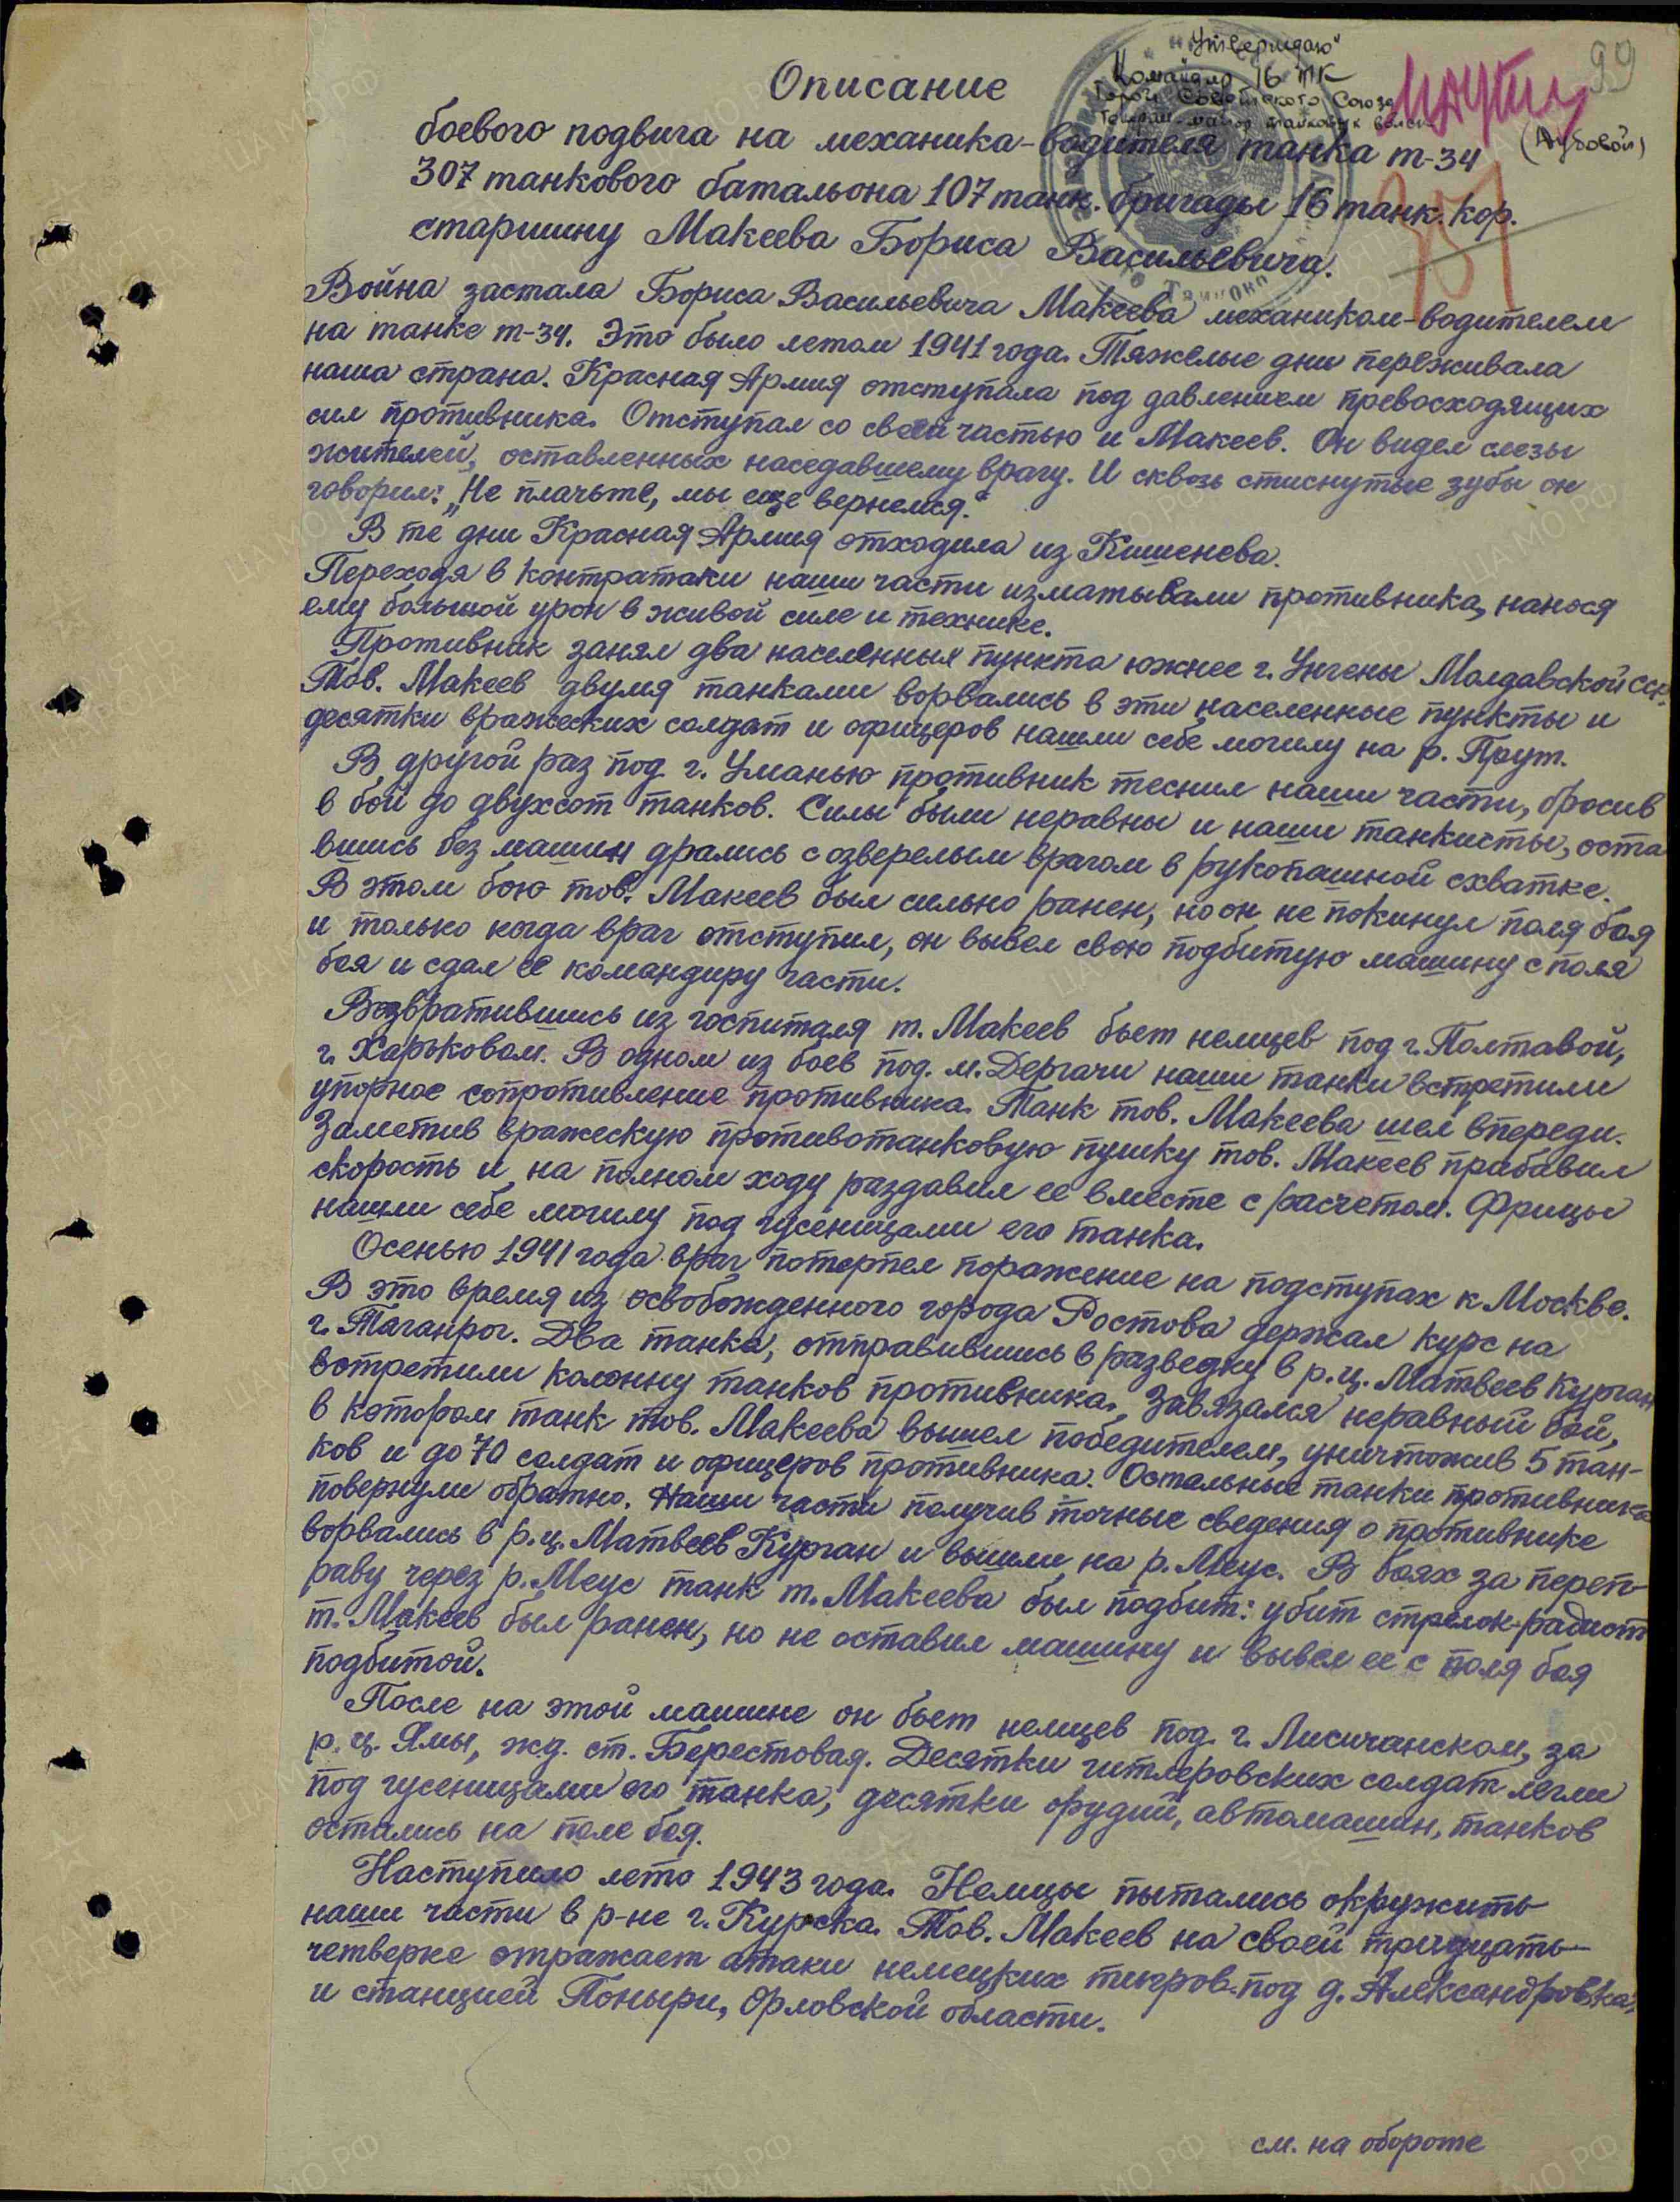 99
"Утверждаю"
Командир 16 ТК
Герой Советского Союза
Генерал-майор танковых войск
(Дубовой)
Описание
боевого подвига на механика-водителя танка т-34
307 танкового батальона 107 танк. бригады 16 танк. кор.
старшину Макеева Бориса Васильевича.
Война застала Бориса Васильевича Макеева механиком-водителем
на танке т-34. Это было летом 1941 года. Тяжелые дни переживала
наша страна. Красная Армия отступала под давлением превосходящих
сил противника. Отступал со своей частью и Макеев. Он видел слезы
жителей, оставленных наседавшему врагу. И сквозь стиснутые зубы он
говорил: „Не плачьте, мы еще вернемся."
В те дни Красная Армия отходила из Кишенева.
Переходя в контратаки наши части изматывали противника, нанося
ему большой урон в живой силе и технике.
Противник занял два населенных пункта южнее г. Унгены Молдавской ССР.
Тов. Макеев двумя танками ворвались в эти населенные пункты и
десятки вражеских солдат и офицеров нашли себе могилу на р. Прут.
В другой раз под г. Уманью противник теснил наши части, бросив
в бой до двухсот танков. Силы были неравны и наши танкисты, оста
вшись без машин дрались с озверелым врагом в рукопашной схватке.
В этом бою тов. Макеев был сильно ранен, но он не покинул поля боя
и только когда враг отступил, он вывел свою подбитую машину с поля
боя и сдал ее командиру части.
Возвратившись из госпиталя т. Макеев бьет немцев под г. Полтавой,
г. Харьковом. В одном из боев под. м. Дергачи наши танки встретили
упорное сопротивление противника. Танк тов. Макеева шел впереди.
Заметив вражескую противотанковую пушку тов. Макеев прибавил
скорость и на полном ходу раздавил ее вместе с расчетом. Фрицы
нашли себе могилу под гусеницами его танка.
Осенью 1941 года враг потерпел поражение на подступах к Москве.
В это время из освобожденного города Ростова держал курс на
г. Таганрог. Два танка, отправившись в разведку в р.ц. Матвеев Курган
встретили колонну танков противника. Завязался неравный бой,
в котором танк тов. Макеева вышел победителем, уничтожив 5 тан-
ков и до 70 солдат и офицеров противника. Остальные танки противника
повернули обратно. Наши части получив точные сведения о противнике
ворвались в р.ц. Матвеев Курган и вышли на р. Меус. В боях за переп-
раву через р. Меус танк т. Макеева был подбит: убит стрелок-радист
т. Макеев был ранен, но не оставил машину и вывел ее с поля боя
подбитой.
После на этой машине он бьет немцев под г. Лисичанском, за
р.ц. Ямы, жд. ст. Берестовая. Десятки гитлеровских солдат легли
под гусеницами его танка, десятки орудий, автомашин, танков
остались на поле боя.
Наступило лето 1943 года. Немцы пытались окружить
наши части в р-не г. Курска. Тов. Макеев на своей тридцать-
четверке отражает атаки немецких тигров под д. Александровка,
и станцией Поныри, Орловской области.
см. на обороте